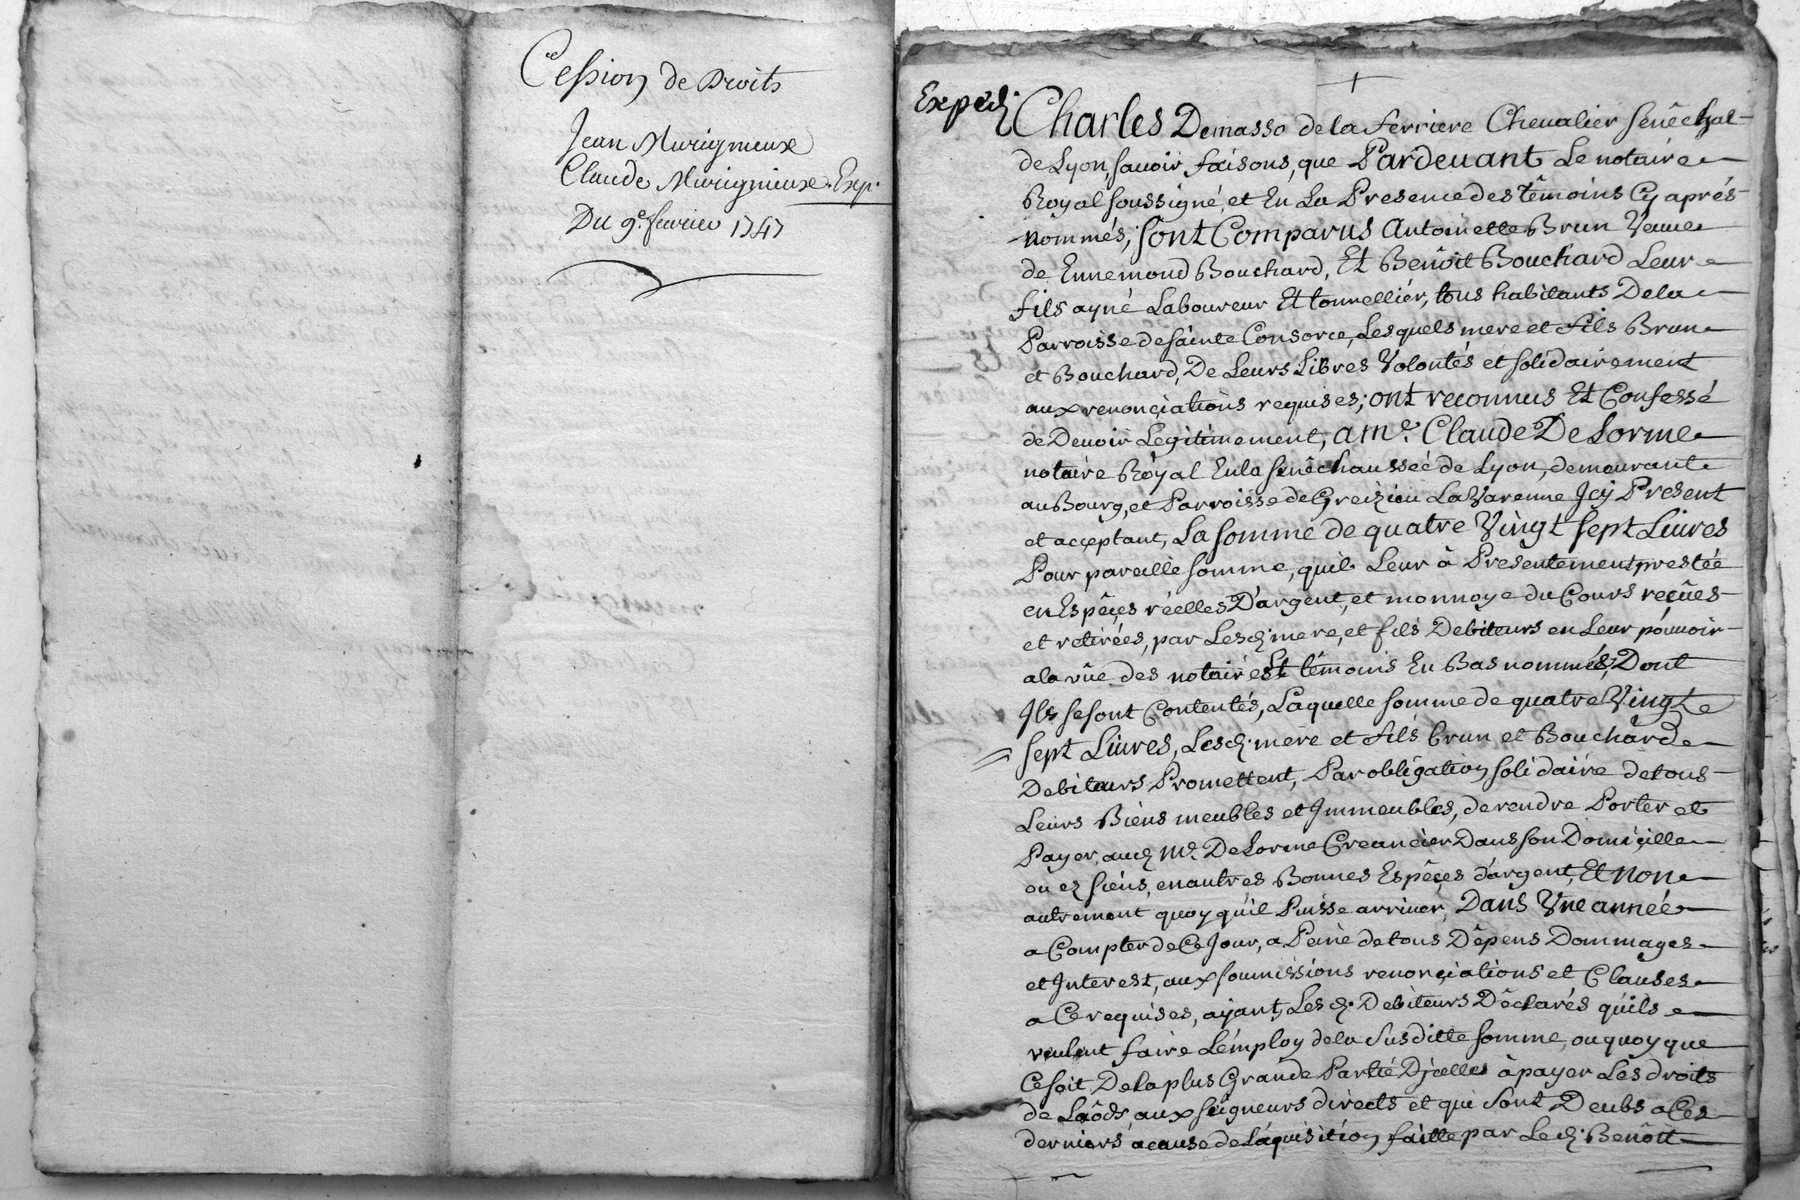 Cession de Droits
Jean Murigneux
Claude Murigneux. Exp.
Du 9e. fevrier 1747
Expedi
Charles Demasso de la ferriere Chevalier senêchal
de Lyon, savoir faisons, que Pardevant Le notaire
Royal soussigné, et En La Presence des têmoins Cy aprés
nommés, sont Comparus Antoinette Brun Veuve
de Ennemond Bouchard, Et Benôit Bouchard Leur
fils ayné Laboureur Et tonnelliér, tous habitants Dela
Parroisse de sainte Consorce, Lesquels mere et fils Brun
et Bouchard, De Leurs Libres Volontés et solidairement
aux renonçiations requises; ont reconnus Et Confessé
de Devoir Legitimement, a me. Claude De Lorme
notaire Röyal En la senêchausseé de Lyon, demeurant
au Bourg, et Parroisse de Greizieu La Varenne Jcy Present
et acçeptant, La somme de quatre Vingt sept Livres
Pour pareille somme, quil Leur à Presentement prestée
en Espêçes réelles D'argent, et monnoye du Cours reçûes
et retirées, par Lesd. mere, et fils Debiteurs en Leur pouvoir
a la vûe des notaire Et têmoins En Bas nommés, Dont
Jls se sont Contentés, Laquelle somme de quatre Vingt
sept Livres, Lesd. mere et fils Brun et Bouchard
Debiteurs Promettent, Par obligation solidaire de tous
Leurs Biens meubles et Jmmeubles, de rendre Porter et
Payer, aud. Me. De Lorme Creancier Dans son Domiçille
ou ez siens, en autres Bonnes Espêçes d'argent, Et non
autrement quoy qu'il Puisse arriver, Dans Vne année
a Compter de Ce Jour, a Peine de tous Dêpens Dommages
et Jnterest, aux soumissions renonçiations et Clauses
a Ce requises, ayant, Lesd. Debiteurs Dêclarés qu'ils
veulent faire L'employ de la Susditte somme, ou quoy que
Ce soit De la plus Grande Partie D'jcelle à payer Les droits
de Laôds aux seigneurs directs et qui sont Deubs a Ces
derniers acause de L'aquisition faitte par Led. Benôit